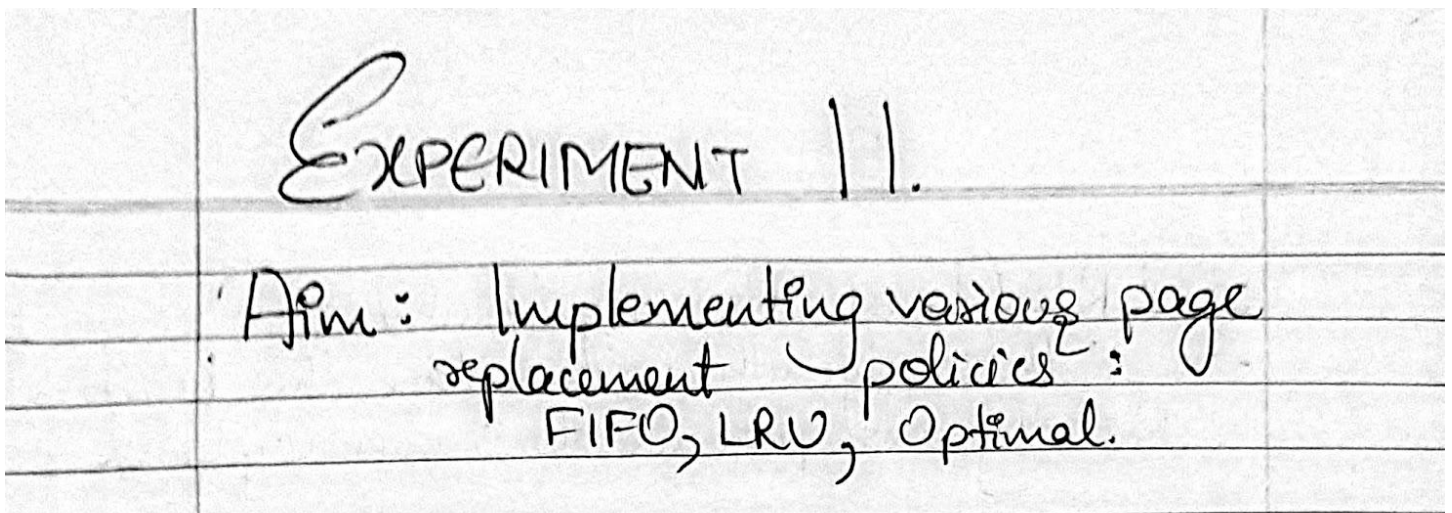 EXPERIMENT 11.
Aim: Implementing various page
replacement policies:
FIFO, LRU, Optimal.